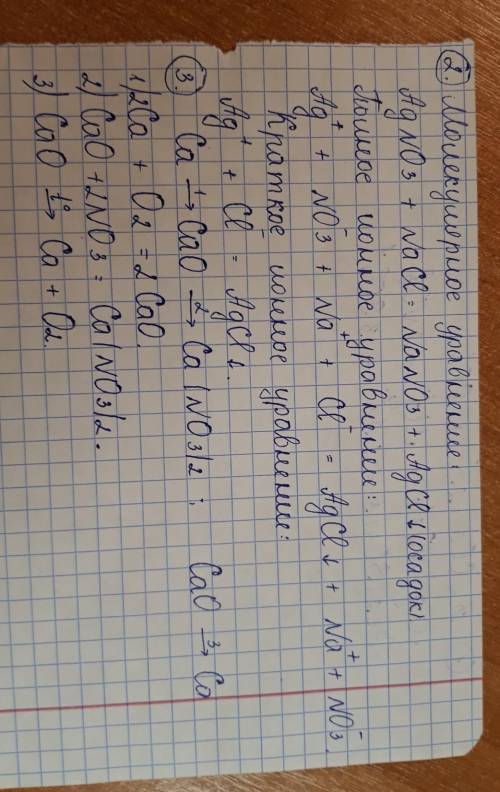 2. Молекулярное уравнение:
AgNO3 + NaCl = NaNO3 + AgCl↓(осадок)
Полное ионное уравнение:
Ag⁺ + NO⁻3 + Na⁺ + Cl⁻ = AgCl↓ + Na⁺ + NO⁻3.
Краткое ионное уравнение:
Ag⁺ + Cl⁻ = AgCl↓.
3. Ca 1→ CaO 2→ Ca(NO3)2; CaO 3→ Ca
1) 2Ca + O2 = 2CaO.
2) CaO + 2NO3 = Ca(NO3)2.
3) CaO t°→ Ca + O2.